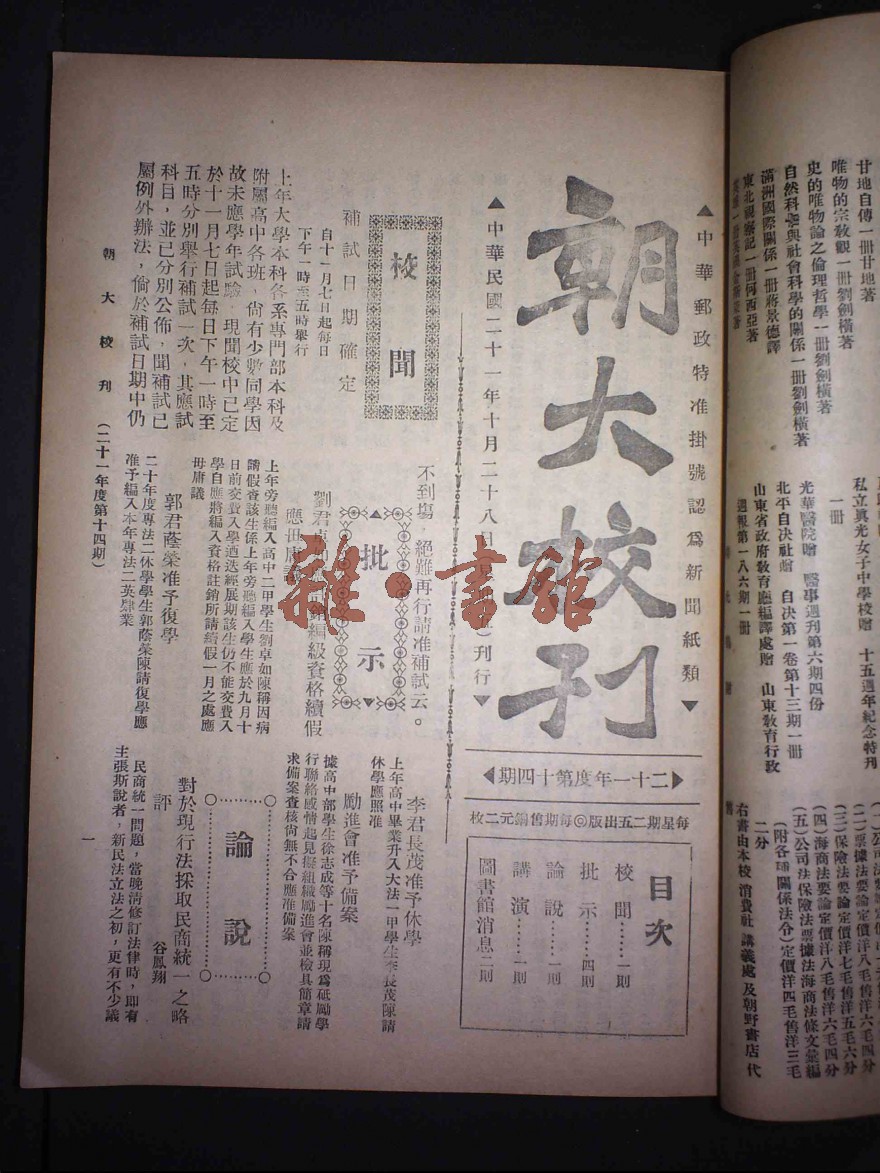 ▲中華郵政特准掛號認爲新聞紙類▼
朝大校刊
▲中華民國二十一年十月二十八日
刊行▼
◀二十一年度第十四期▶
每星期二五出版◎每期售銅元二枚
目次
校聞……一則
批示……四則
論說……一則
講演……一則
圖書館消息二則
校聞
補試日期確定
自十一月七日起每日
下午一時至五時舉行
上年大學本科各系專門部本科及
附屬高中各班，尙有少數同學因
故未應學年試驗，現聞校中已定
於十一月七日起每日下午一時至
五時分別舉行補試一次，其應試
科目，並已分別公佈，聞補試已
屬例外辦法，倘於補試日期中仍
不到塲，絕難再行請准補試云。
批示
劉君卓如
銷編級資格續假
應毋庸議
上年旁聽編入高中二甲學生劉卓如陳稱因病
請假查該生係上年旁聽編入學生應於九月十
日前交費入學迺迭經展期該生仍不能交費入
學自應將編入資格註銷所請續假一月之處應
毋庸議
郭君蔭榮准予復學
二十年度專法二休學學生郭蔭榮陳請復學應
准予編入本年專法二英肆業
李君長茂准予休學
上年高中畢業升入大法一甲學生李長茂陳請
休學應照准
勵進會准予備案
據高中部學生徐志成等十名陳稱現爲砥勵學
行聯絡感情起見擬組織勵進會並檢具簡章請
求備案查核尙無不合應准備案
論說
對於現行法採取民商統一之略
評
谷鳳翔
民商統一問題，當晚淸修訂法律時，即有
主張斯說者，新民法立法之初，更有不少議
朝大校刊
(二十一年度第十四期)
一
雜·書館
甘地自傳一冊甘地著
唯物的宗敎觀一冊劉劍橫著
史的唯物論之倫理哲學一冊劉劍橫著
自然科學與社會科學的關係一冊劉劍橫著
滿洲國際關係一冊蔣景德譯
東北視察記一冊何西亞著
私立眞光女子中學校贈 十五週年紀念特刊
一冊
光華醫院贈 醫事週刊第六期四份
北平自决社贈 自决第一卷第十三期一冊
山東省政府敎育廳編譯處贈 山東敎育行政
週報第一八六期一冊
(二)票據法要論定價洋八毛售洋六毛四分
(三)保險法要論定價洋七毛售洋五毛六分
(四)海商法要論定價洋八毛售洋六毛四分
(五)公司法保險法票據法海商法條文彙編
(附各種關係法令)定價洋四毛售洋三毛
二分
右書由本校消費社講義處及朝野書店代